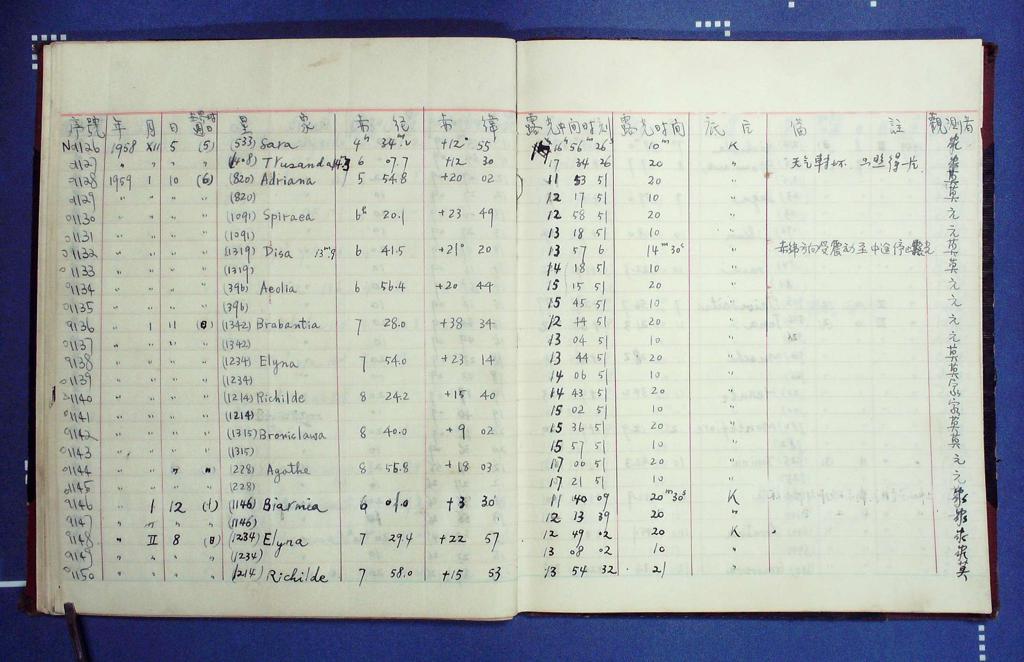 序號 年 月 日 世界時週日 星家 赤經 赤緯 露光中間時刻 露光时间 底片 備註 觀測者
No1126 1958 XII 5 (5) (533) Sara 4h 34m.2 +12° 55' 16h 56m 26s 10m K
01127 " " " Trusanda 6 07.7 +12 30 17 34 26 20 " 天气轉坏 只照得一片
01128 1959 1 10 (6) (820) Adriana 5 54.8 +20 02 11 53 51 20 " 莫
01129 " " " " (820) 12 17 51 10 " 莫
01130 " " " " (1091) Spiraea 6h 20.1 +23 49 12 58 51 20 " 元
01131 " " " " (1091) 13 18 51 10 " 元
01132 " " " " (1319) Disa 13m.9 6 41.5 +21° 20 13 57 6 14m 30s " 赤緯方向受震动至中途停止露光 莫
01133 " " " " (1319) 14 18 51 10 " 莫
01134 " " " " (396) Aeolia 6 56.4 +20 44 15 15 51 20 " 元
01135 " " " " (396) 15 45 51 10 " 元
01136 " 1 11 (日) (1342) Brabantia 7 28.0 +38 34 12 44 51 20 " 元
01137 " " " " (1342) 13 04 51 10 " 元
01138 " " " " (1234) Elyna 7 54.0 +23 14 13 44 51 20 " 莫
01139 " " " " (1234) 14 06 51 10 " 莫
01140 " " " " (1214) Richilde 8 24.2 +15 40 14 43 51 20 " 家
01141 " " " " (1214) 15 02 51 10 " 家
01142 " " " " (1315) Bronislawa 8 40.0 +9 02 15 36 51 20 " 莫
01143 " " " " (1315) 15 57 51 10 " 莫
01144 " " " " (228) Agathe 8 55.8 +18 03 17 00 51 20 " 元
01145 " " " " (228) 17 21 51 10 " 元
01146 " 1 12 (1) (1146) Biarmia 6 01.0 +3 30 11 40 09 20m 30s K
01147 " " " " (1146) 12 13 39 20 "
01148 " II 8 (日) (1234) Elyna 7 29.4 +22 57 12 49 02 20 K
01149 " " " " (1234) 13 08 02 10 "
01150 " " " " (1214) Richilde 7 58.0 +15 53 13 54 32 21 " 莫